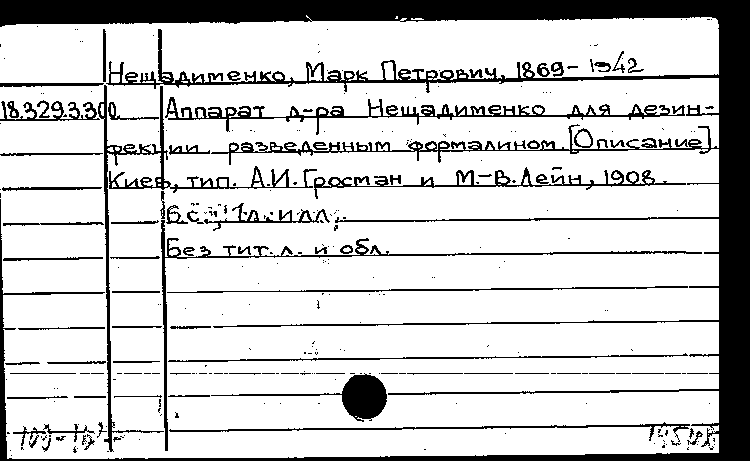 Нещадименко, Марк Петрович, 1869-1942
18.329.3.300 Аппарат д-ра Нещадименко для дезин-
фекции разведенным формалином. [Описание].
Киев, тип. А.И. Гросман и М.-В. Лейн, 1908.
6 с., 1 л. илл.
Без тит. л. и обл.